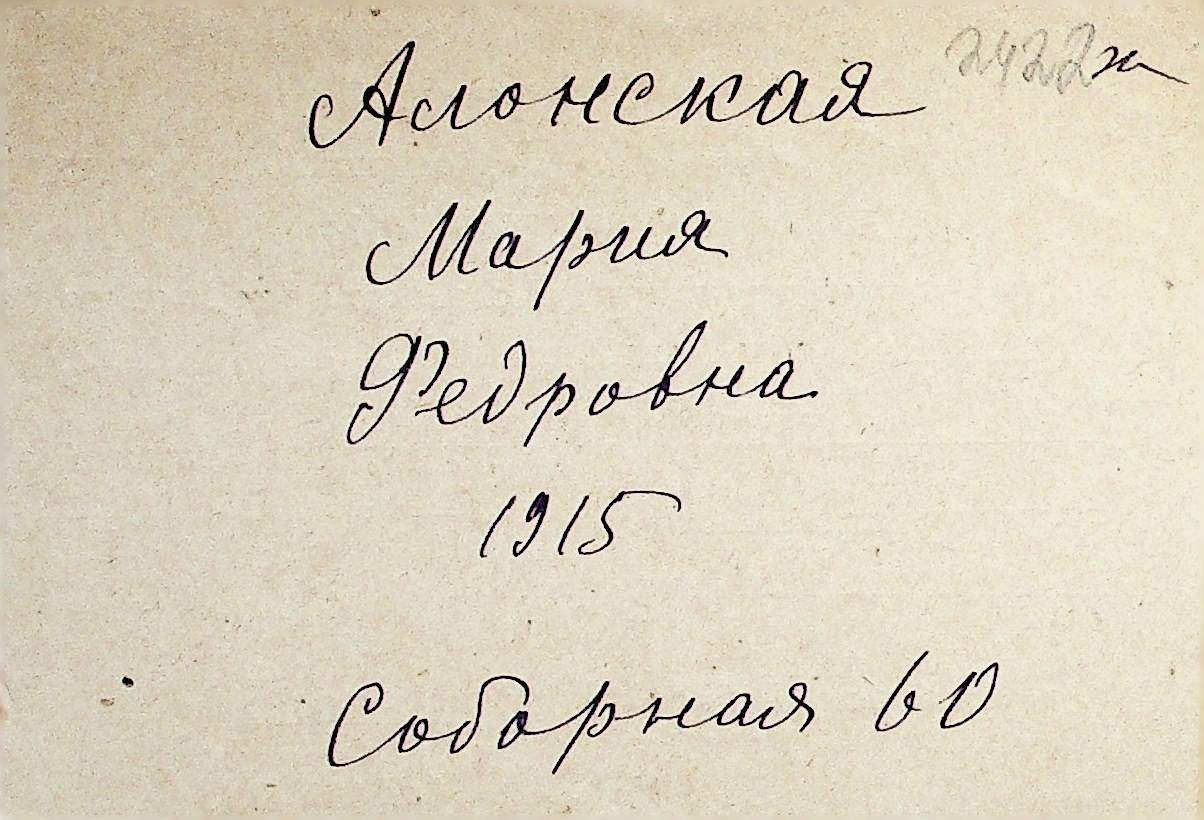 2422ж
Алонская
Мария
Федровна
1915
Соборная 60